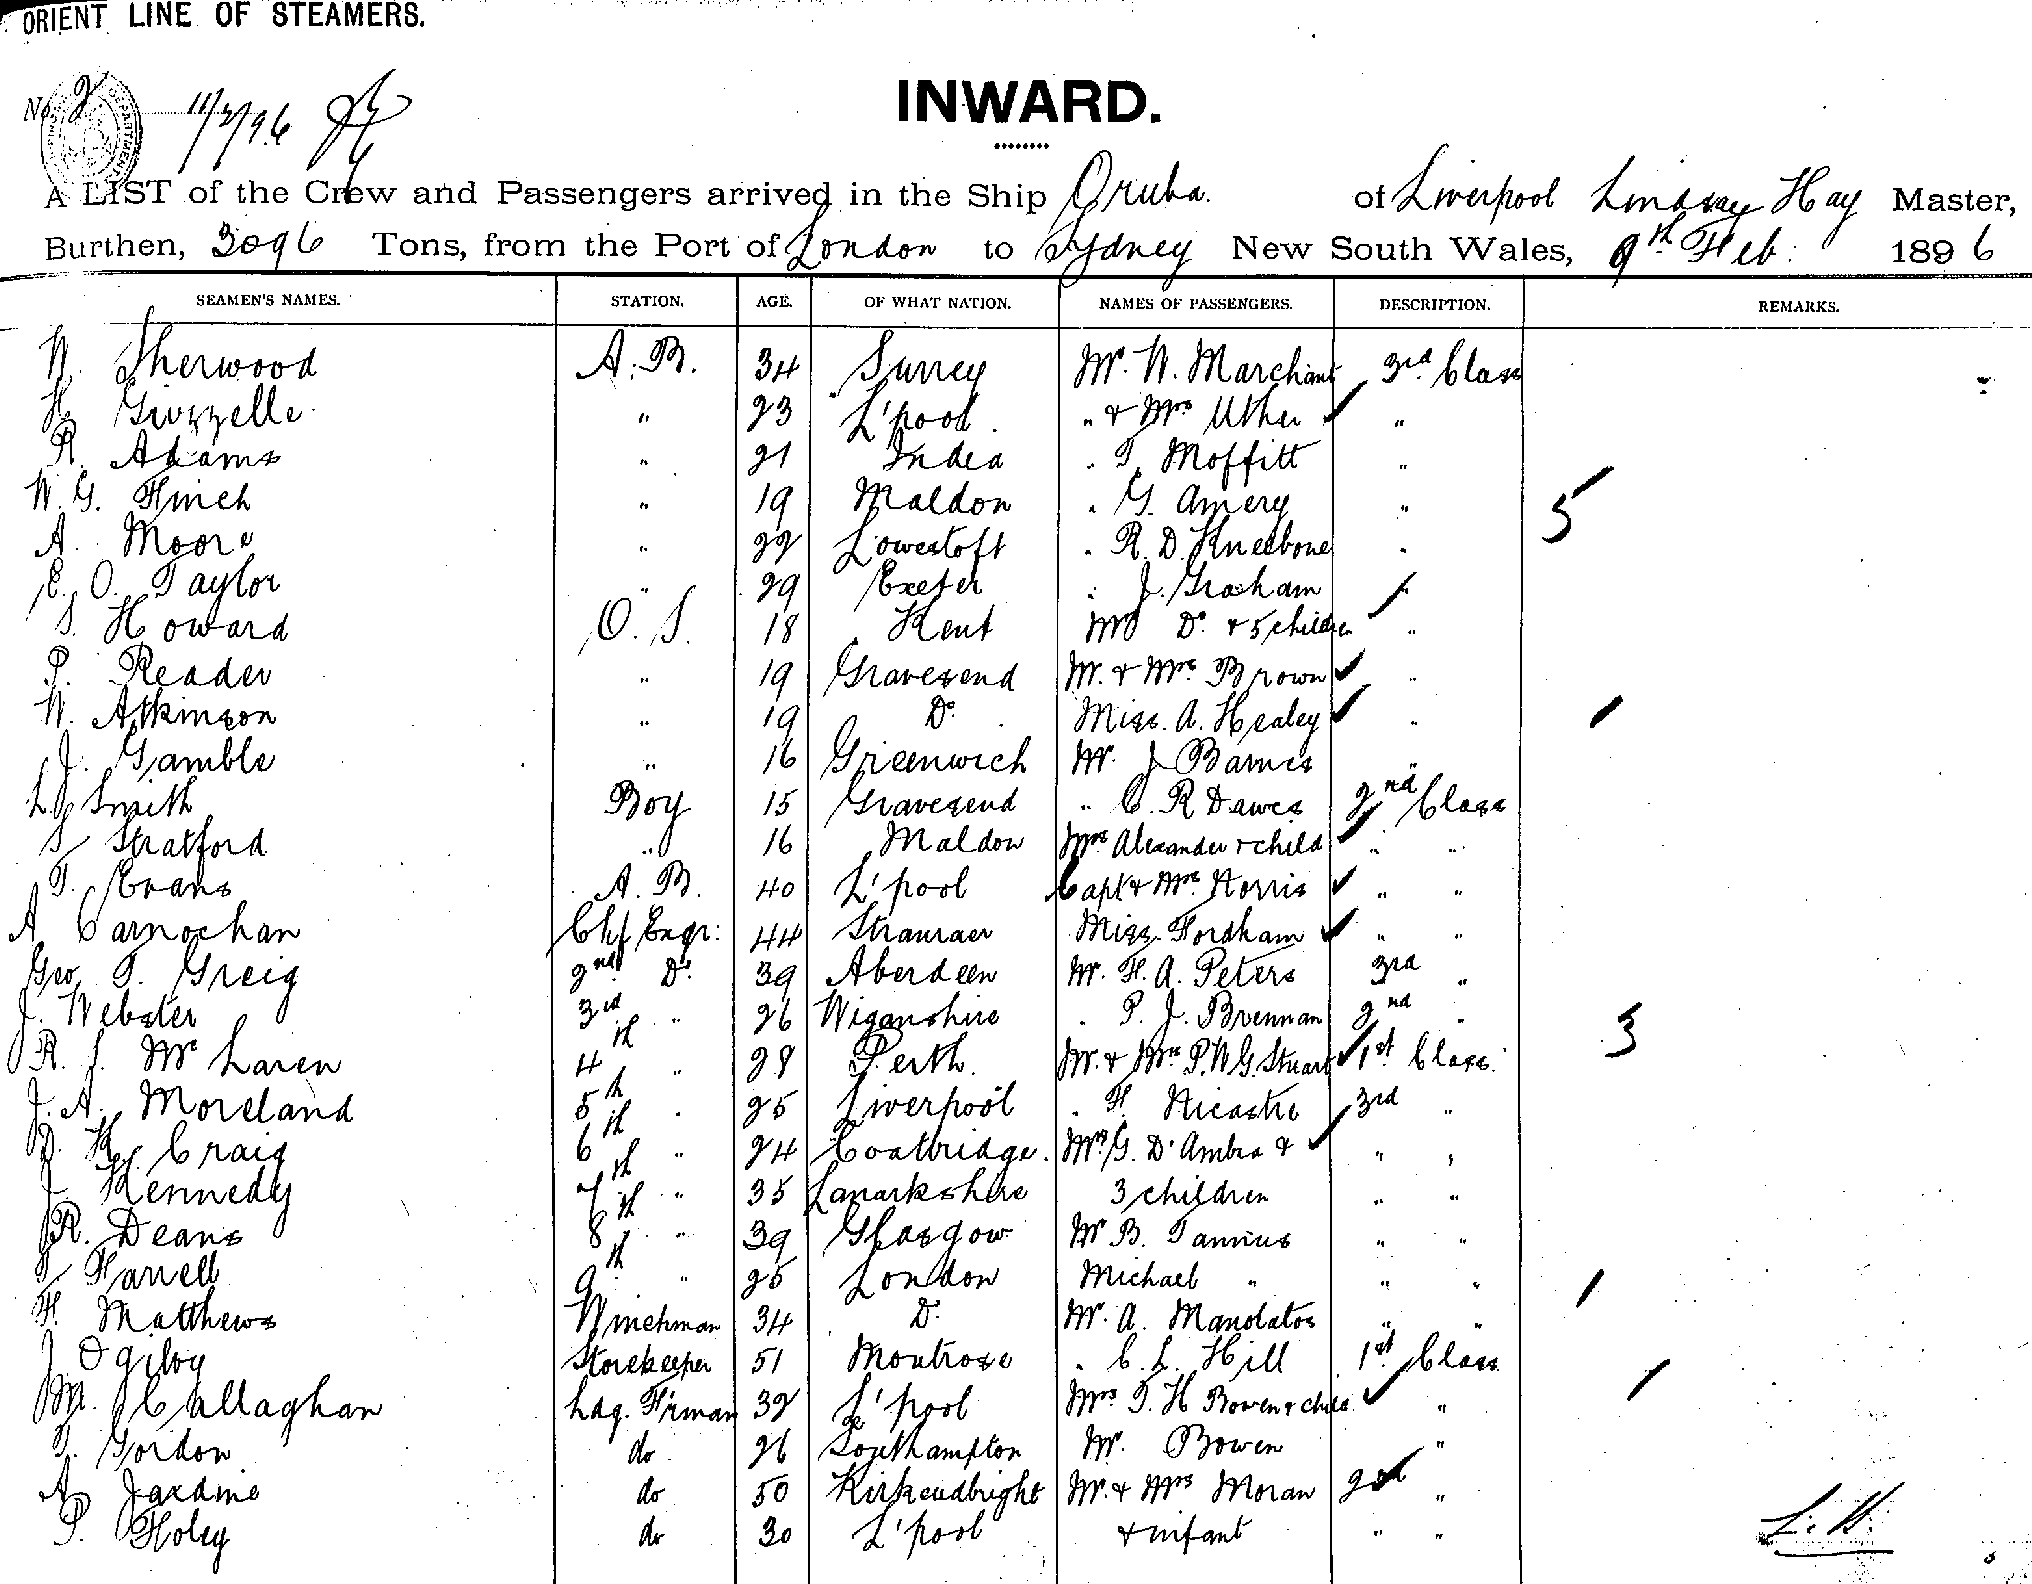 ORIENT LINE OF STEAMERS.
No. 2 11/2/96
INWARD.
A LIST of the Crew and Passengers arrived in the Ship Oruba. of Liverpool Lindsay Hay Master,
Burthen, 3096 Tons, from the Port of London to Sydney New South Wales, 9th Feb: 1896
SEAMEN'S NAMES. STATION. AGE. OF WHAT NATION. NAMES OF PASSENGERS. DESCRIPTION. REMARKS.
W. Sherwood A.B. 34 Surrey Mr. W. Marchant 3rd. Class
H. " 23 L'pool. " & Mrs Uther "
R. Adams " 21 India " T. Moffitt "
W. G. Finch " 19 Maldon " G. Amery " 5
A. Moore " 22 Lowestoft " R. D. Kneebone "
E. O. Taylor " 29 Exeter " J. Graham "
S. Howard O. S. 18 Kent Mrs Do. & 5 children "
P. Reader " 19 Gravesend Mr. & Mrs Brown "
W. Atkinson " 19 Do. Miss. A. Healey " 1
J. Gamble " 16 Greenwich Mr. J Barnes "
L J Smith Boy 15 Gravesend " C. R Dawes 2nd Class
S Stratford " 16 Maldon Mrs Alexander & child " "
T. Evans A. B. 40 L'pool Capt & Mrs Norris " "
A Carnochan Chf Engr: 44 Stranraer Miss. Fordham " "
Geo T. Greig 2nd Do. 39 Aberdeen Mr. H. A. Peters 3rd "
J. Webster 3rd " 26 Wiganshire " P. J. Brennan 2nd "
R. J. Mc Laren 4th " 28 Perth. Mr. & Mrs P. W G. Stuart 1st Class. 3
J. A. Moreland 5th " 25 Liverpool " F. Nicastro 3rd "
J. K. Craig 6th " 24 Coatbridge. Mrs G. D'Ambra & " "
J Kennedy 7th " 35 Lanarkshire 3 children " "
R. Deans 8th " 39 Glasgow Mr B. Tannius " "
T Farrell 9th " 25 London Michael " " " 1
F. Matthews Winchman 34 Do. Mr. A. Manolatos " "
J Ogilvy Storekeeper 51 Montrose " C. L. Hill 1st Class
M. Callaghan Ldg. F'rman 32 L'pool Mrs T. H Bowen & child " 1
T. Gordon do 26 Southampton Mr. Bowen "
A Jardine do 50 Kirkcudbright Mr. & Mrs Moran 2nd "
P. Foley do 30 L'pool & infant " "
L. H.